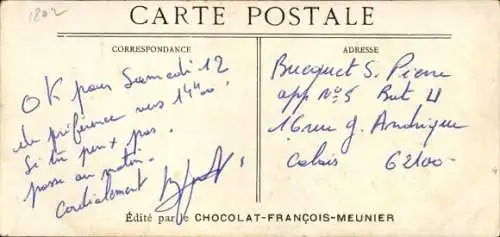 1802
CARTE POSTALE
CORRESPONDANCE
OK pour Samedi 12
de préférence vers 14h00.
Si tu peux pas.
passe au matin.
Cordialement
ADRESSE
Bucquet S. Pierre
app N°5 Bat U
16 rue g. Andrique
Calais 62100
Édité par le CHOCOLAT-FRANÇOIS-MEUNIER